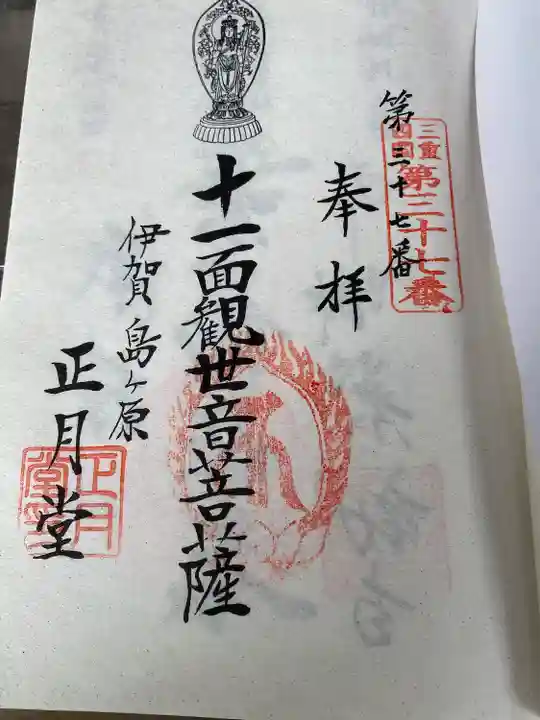 三重
四国
第三十七番
第三十七番
奉拝
十一面観世音菩薩
伊賀島ヶ原
正月堂
正月
堂